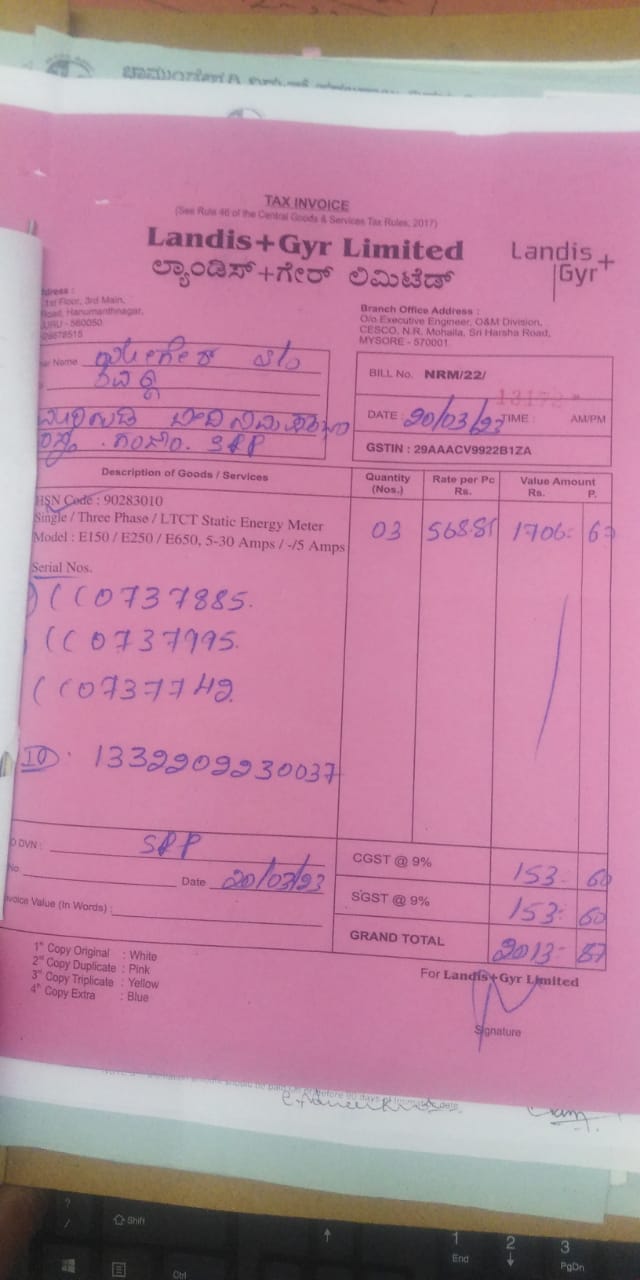 TAX INVOICE
(See Rule 46 of the Central Goods & Services Tax Rules, 2017)
Landis+Gyr Limited
ಲ್ಯಾಂಡಿಸ್+ಗೇರ್ ಲಿಮಿಟೆಡ್
Landis+
Gyr
dress :
1st Floor, 3rd Main,
Road, Hanumanthnagar,
URU - 560050
26678515
Branch Office Address :
O/o Executive Engineer, O&M Division,
CESCO, N.R. Mohalla, Sri Harsha Road,
MYSORE - 570001
er Name
BILL No. NRM/22/
DATE : 20/03/23 TIME : AM/PM
GSTIN : 29AAACV9922B1ZA
SRP
Description of Goods / Services
Quantity (Nos.)
Rate per Pc Rs.
Value Amount Rs. P.
HSN Code : 90283010
Single / Three Phase / LTCT Static Energy Meter
Model : E150 / E250 / E650, 5-30 Amps / -/5 Amps
03 568.81 1706=
Serial Nos.
CC0737885.
CC0737995.
CC0737742
ID. 1332209230037
O DVN : SRP
No. Date 20/03/23
nvoice Value (In Words) :
CGST @ 9% 153= 60
SGST @ 9% 153= 60
GRAND TOTAL 2013= 87
1st Copy Original : White
2nd Copy Duplicate : Pink
3rd Copy Triplicate : Yellow
4th Copy Extra : Blue
For Landis+Gyr Limited
Signature
? /
Shift
Ctrl
1 End
2
3 PgDn